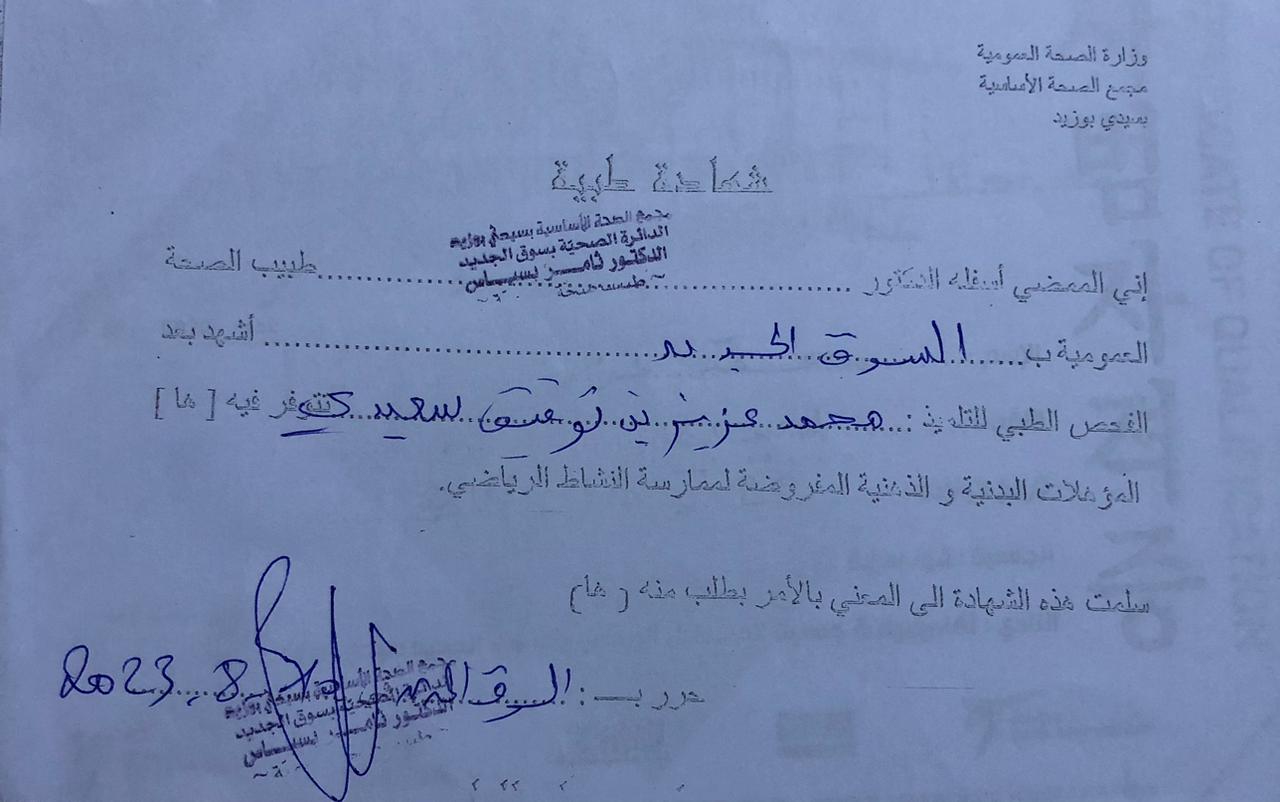 وزارة الصحة العمومية
مجمع الصحة الأساسية
بسيدي بوزيد
شهادة طبية
مجمع الصحة الأساسية بسيدي بوزيد
الدائرة الصحية بسوق الجديد
الدكتور ثامر بسباس
إني الممضي أسفله الدكتور ........................ طبيب الصحة
العمومية ب......السوق الجديد........................ أشهد بعد
الفحص الطبي للتلميذ : محمد عزيز بن توفيق سعيدي تتوفر فيه [ ها ]
المؤهلات البدنية و الذهنية المفروضة لممارسة النشاط الرياضي.
سلمت هذه الشهادة الى المعني بالأمر بطلب منه [ ها]
حرر بـ : السوق الجديد 8 2023
مجمع الصحة الأساسية بسيدي بوزيد
الدائرة الصحية بسوق الجديد
الدكتور ثامر بسباس